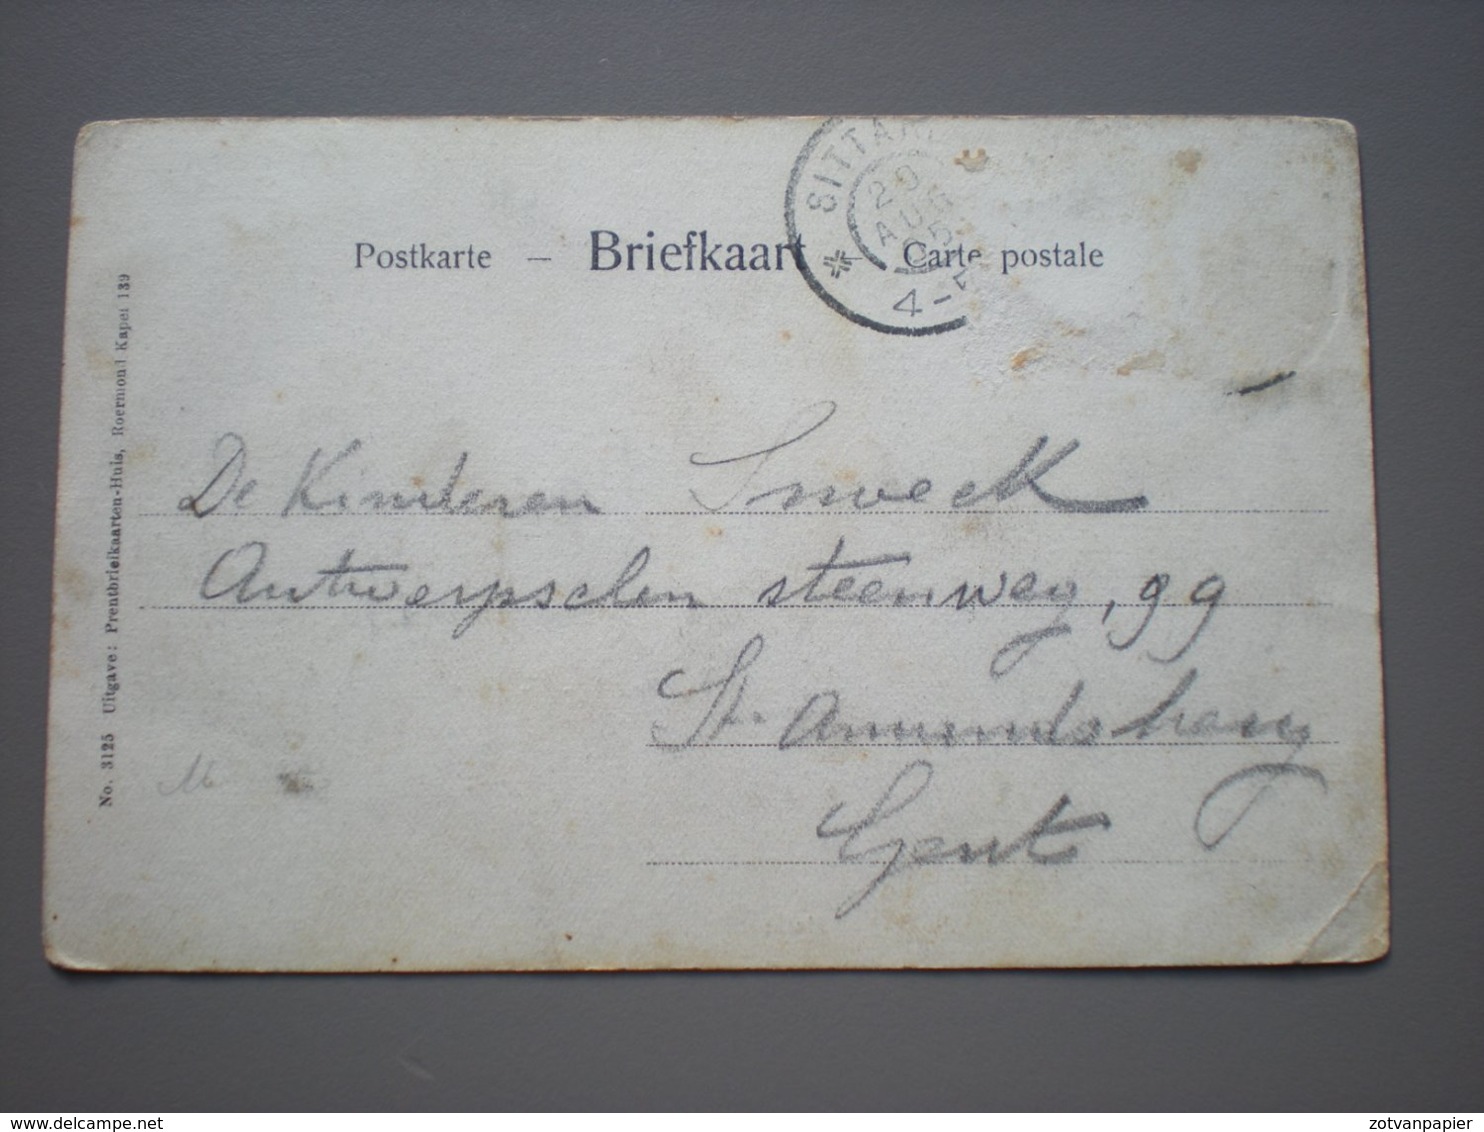 Postkarte – Briefkaart – Carte postale
SITTAR
20
AUG
05
4-5
No. 3125 Uitgave: Prentbriefkaarten-Huis, Roermond Kapel 139
De Kinderen Smeck
Antwerpschen steenweg, 99
St. Amandsberg
Gent
M
www.delcampe.net
zotvanpapier